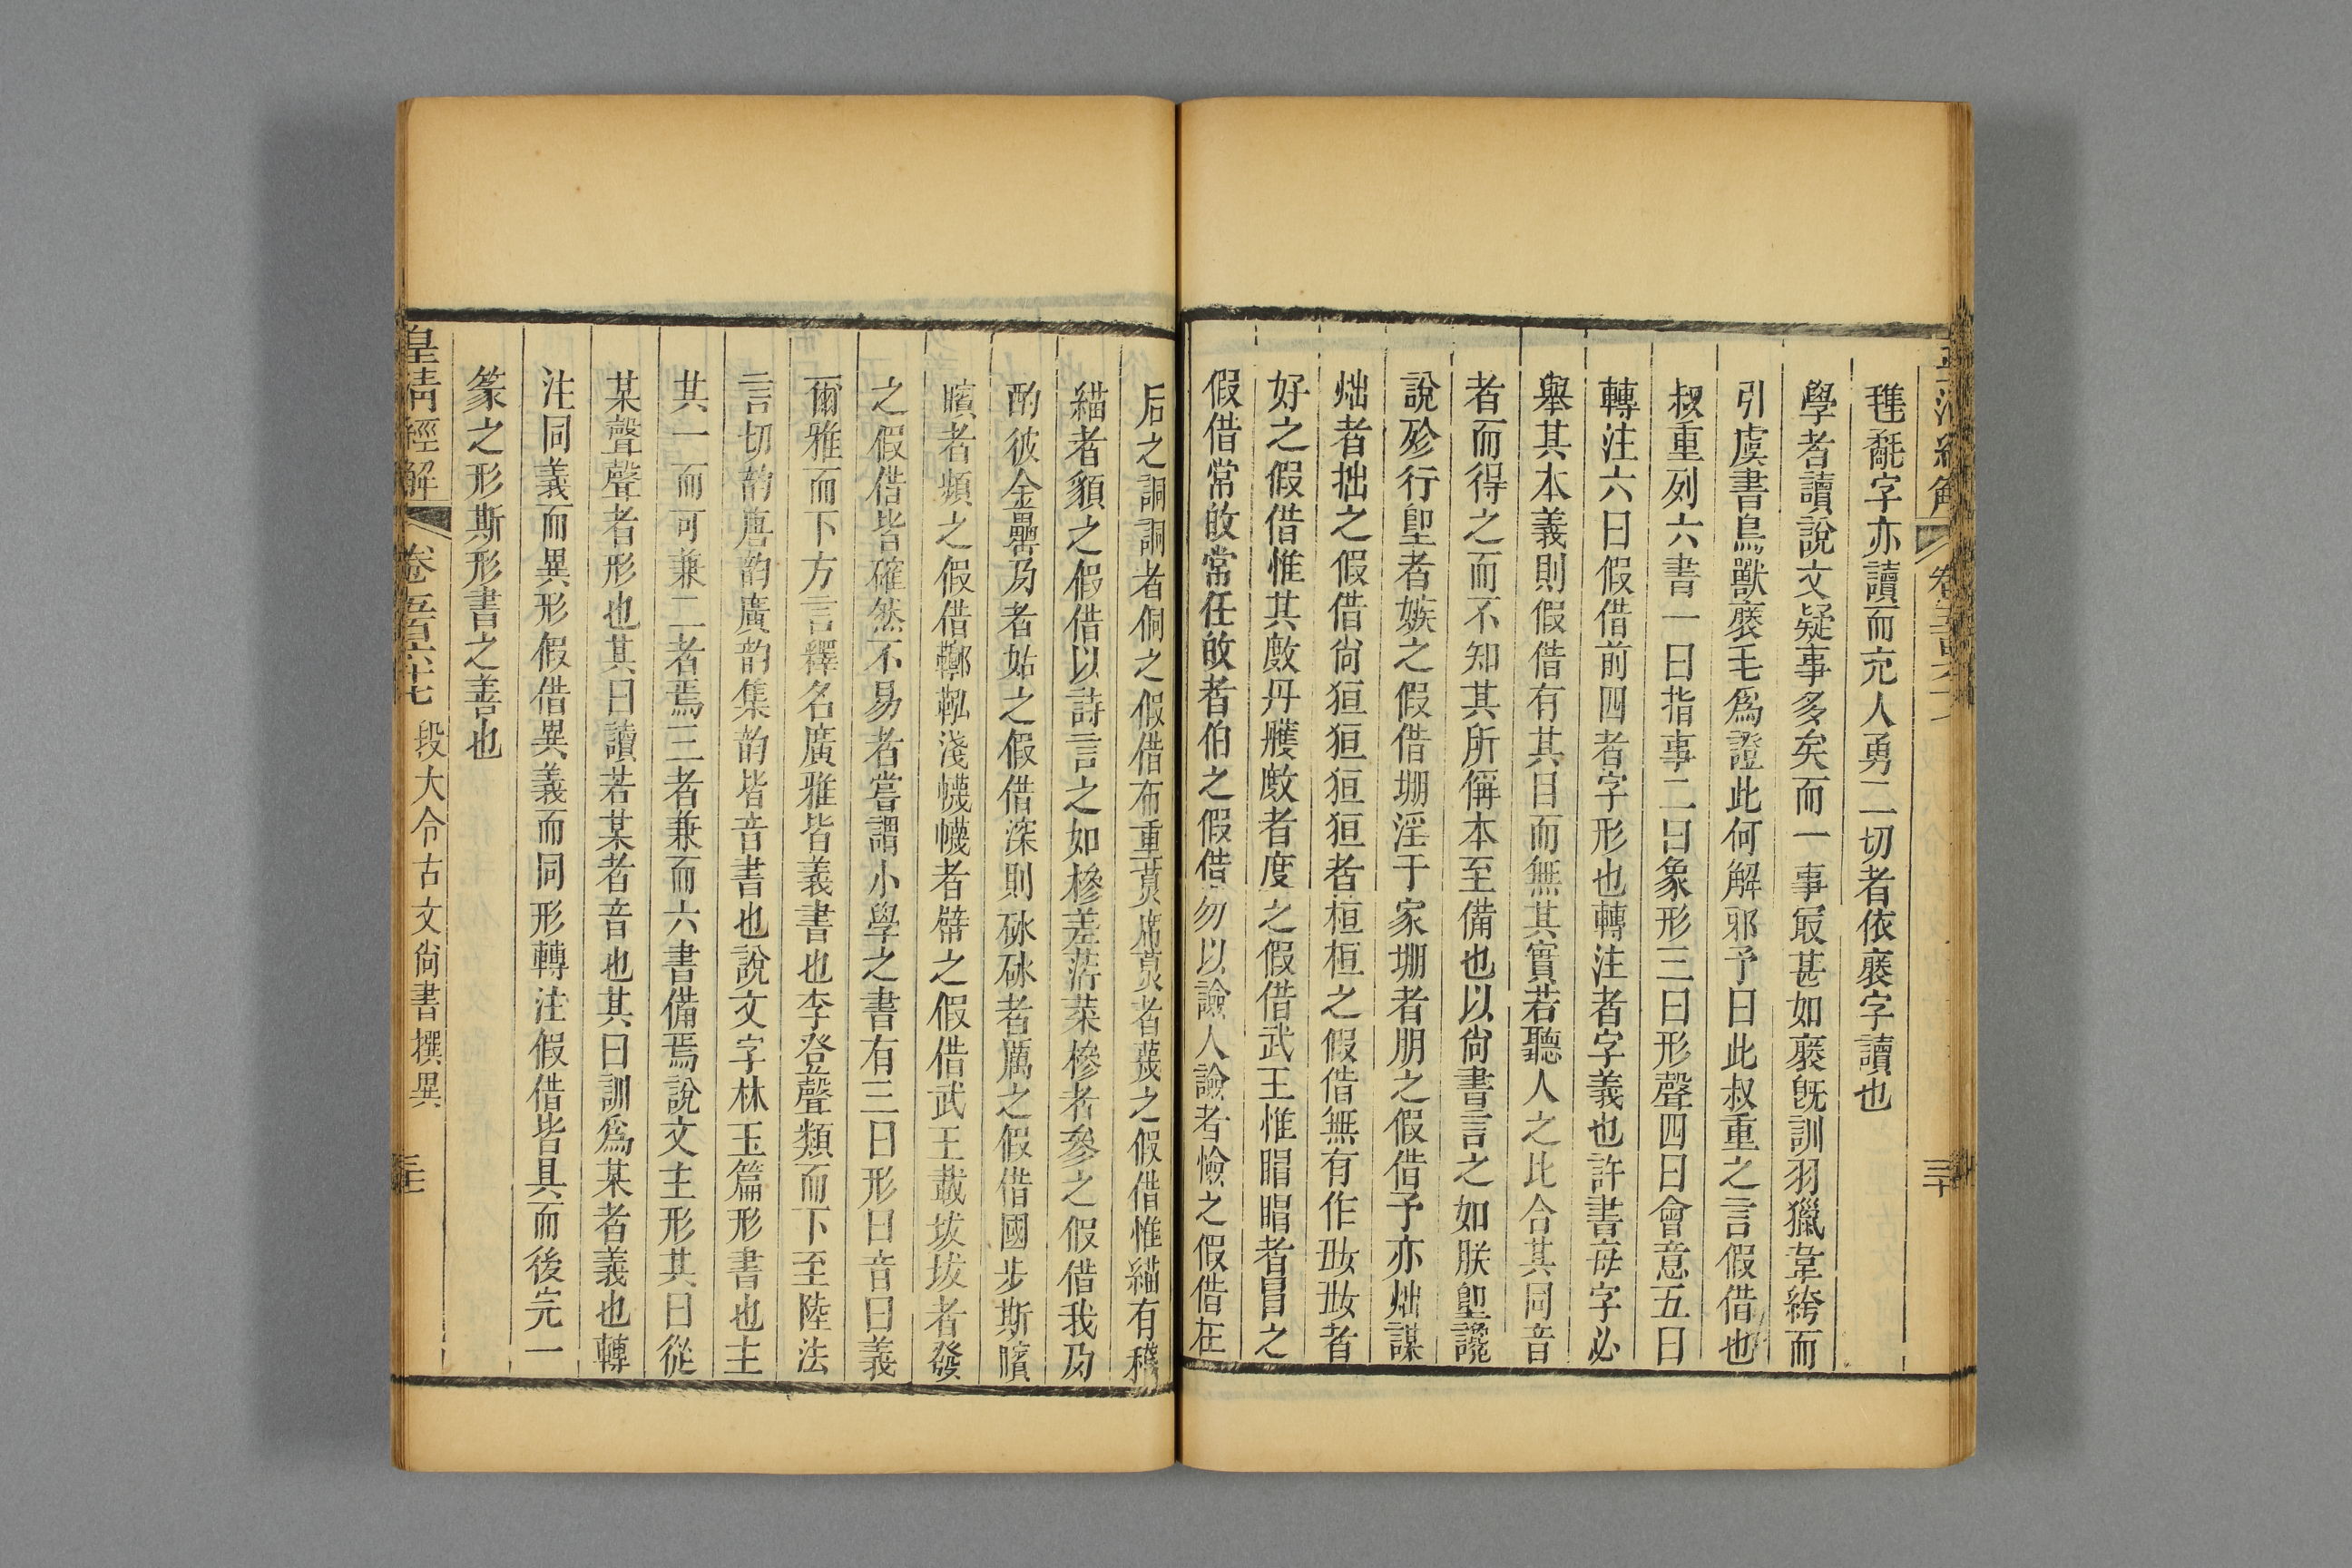 皇清經解
卷五百六十七
三十
𣯍㲨字亦讀而𠑽人勇二切者依褎字讀也
學者讀說文疑事多矣而一事㝡甚如褎旣訓羽獵韋絝而
引虞書鳥獸褎毛爲證此何解邪予曰此叔重之言假借也
叔重列六書一曰指事二曰象形三曰形聲四曰會意五曰
轉注六曰假借前四者字形也轉注者字義也許書每字必
舉其本義則假借有其目而無其實若聽人之比合其同音
者而得之而不知其所偁本至備也以尙書言之如朕堲讒
說殄行堲者嫉之假借堋淫于家堋者朋之假借予亦炪謀
炪者拙之假借尙狟狟狟狟者桓桓之假借無有作𡚽𡚽者
好之假借惟其㪲丹雘㪲者度之假借武王惟䀩䀩者冒之
假借常敀常任敀者伯之假借勿以譣人譣者憸之假借在
后之詷詷者侗之假借布重莧席莧者蔑之假借惟緢有稽
緢者貌之假借以詩言之如槮差荇菜槮者參之假借我夃
酌彼金罍夃者姑之假借深則砅砅者厲之假借國步斯矉
矉者頻之假借鞹鞃淺幭幭者幦之假借武王載坺坺者發
之假借皆確然不易者嘗謂小學之書有三曰形曰音曰義
爾雅而下方言釋名廣雅皆義書也李登聲類而下至陸法
言切韵唐韵廣韵集韵皆音書也說文字林玉篇形書也主
其一而可兼二者焉三者兼而六書備焉說文主形其曰從
某聲聲者形也其曰讀若某者音也其曰訓爲某者義也轉
注同義而異形假借異義而同形轉注假借皆具而後完一
篆之形斯形書之善也
皇清經解
卷五百六十七
段大令古文尙書撰異
三十